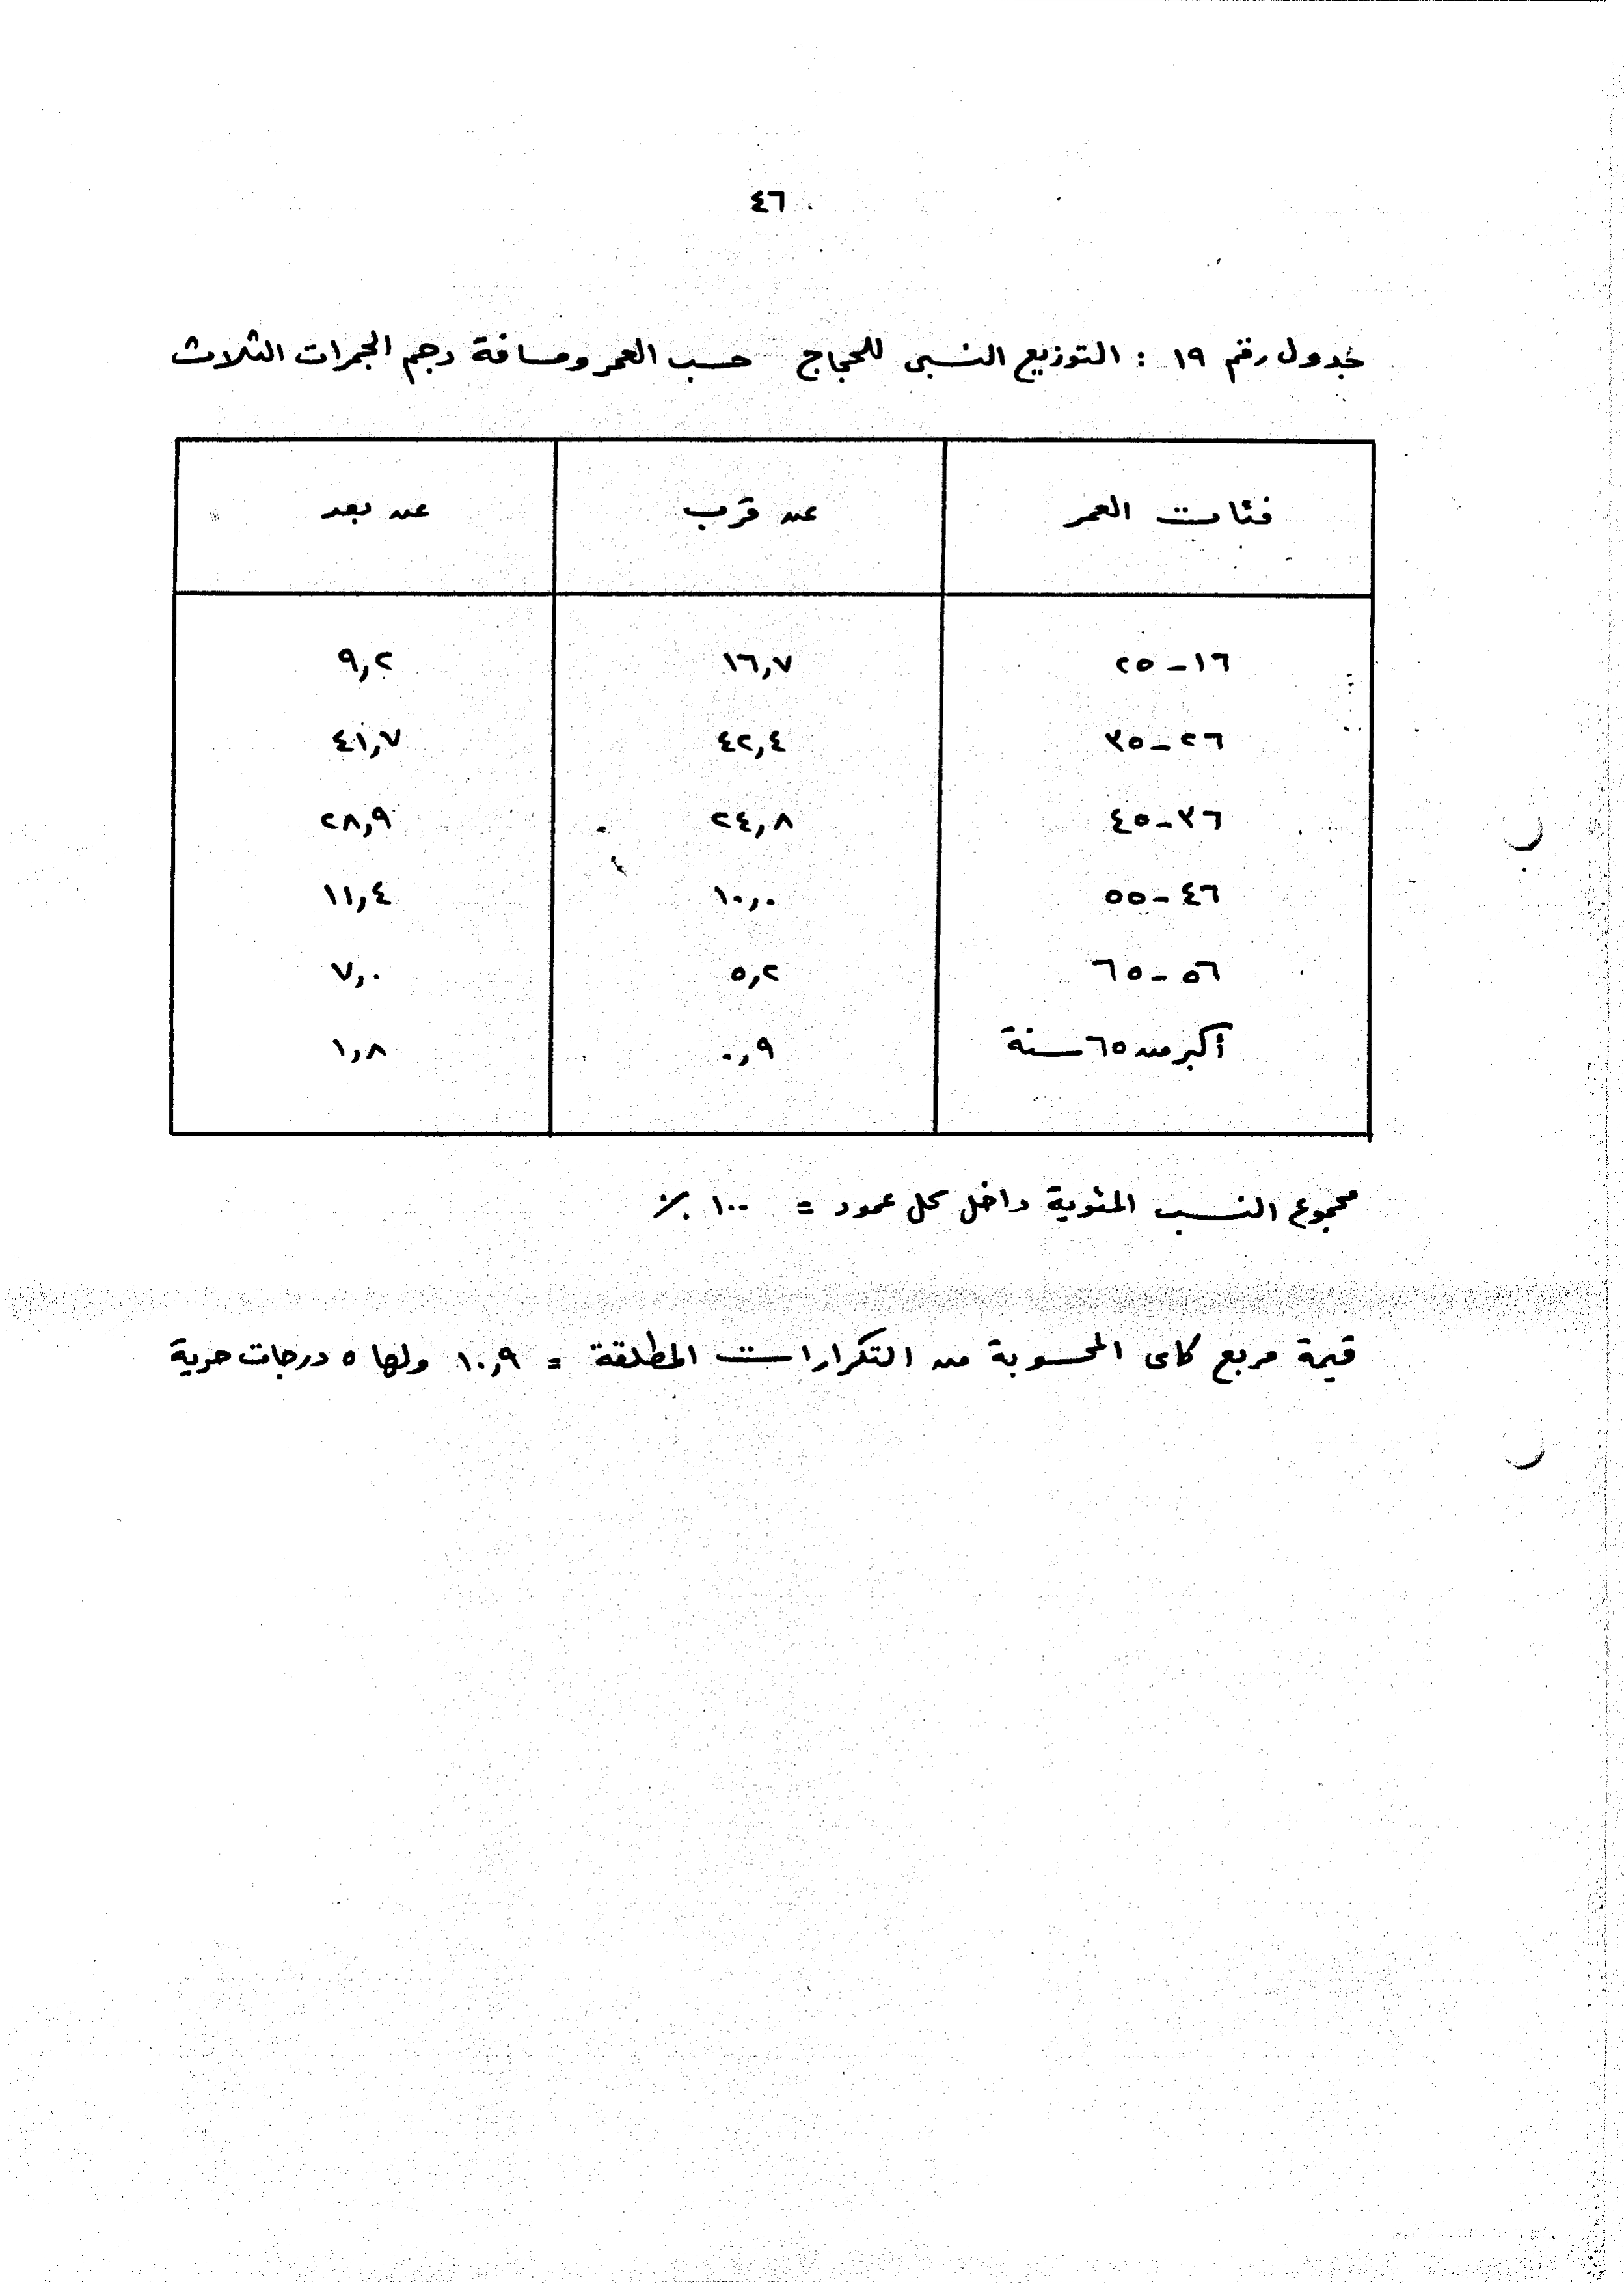 ٤٦
جدول رقم ١٩ : التوزيع النسبى للحجاج حسب العمر ومسافة رجم الجمرات الثلاث
فئات العمر عن قرب عن بعد
١٦ - ٢٥ ١٦,٧ ٩,٢
٢٦ - ٣٥ ٤٢,٤ ٤١,٧
٣٦ - ٤٥ ٢٤,٨ ٢٨,٩
٤٦ - ٥٥ ١٠,٠ ١١,٤
٥٦ - ٦٥ ٥,٢ ٧,٠
أكبر من ٦٥ سنة ٠,٩ ١,٨
مجموع النسب المئوية داخل كل عمود = ١٠٠ ٪
قيمة مربع كاى المحسوبة من التكرارات المطلقة = ١٠,٩ ولها ٥ درجات حرية